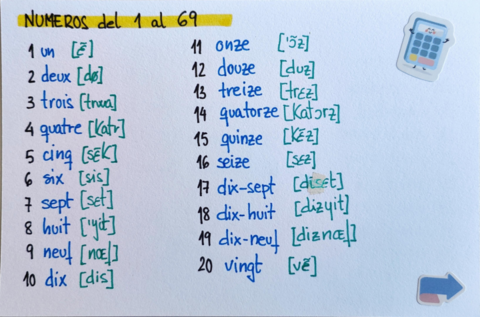 NUMEROS del 1 al 69
1 un [ɛ̃]
2 deux [dø]
3 trois [trwa]
4 quatre [katr]
5 cinq [sɛ̃k]
6 six [sis]
7 sept [sɛt]
8 huit ['ɥit]
9 neuf [nœf]
10 dix [dis]
11 onze ['ɔ̃z]
12 douze [duz]
13 treize [trɛz]
14 quatorze [katɔrz]
15 quinze [kɛ̃z]
16 seize [sɛz]
17 dix-sept [disɛt]
18 dix-huit [dizɥit]
19 dix-neuf [diznœf]
20 vingt [vɛ̃]